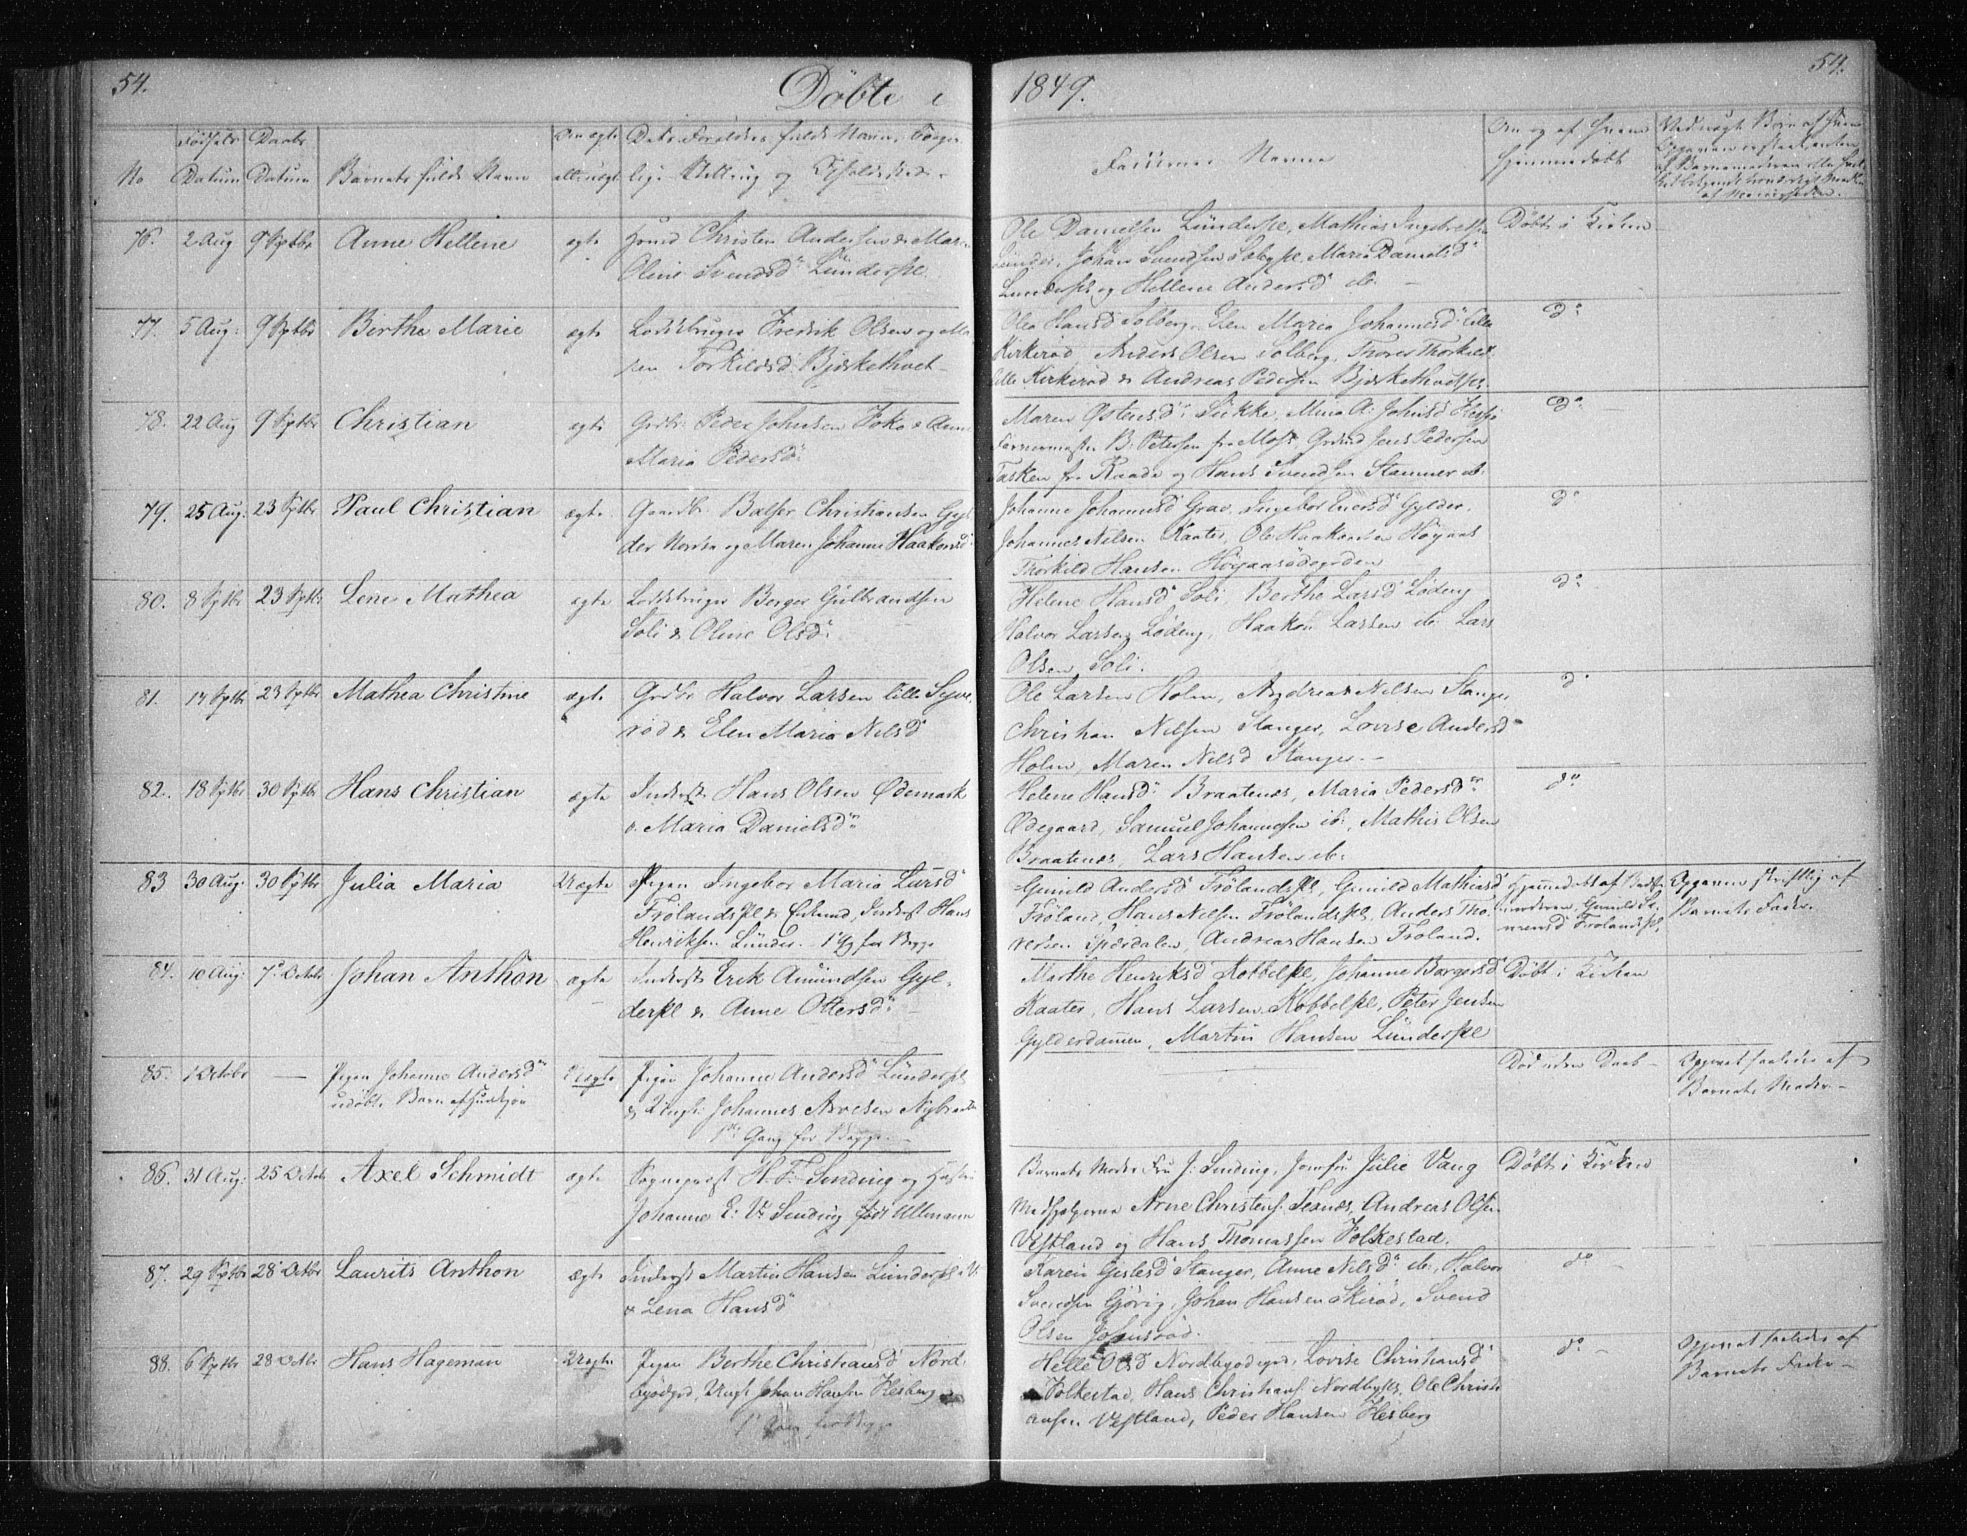 54.
Døbte i 1849.
54.
No
Fødsels Datum
Daabs Datum
Barnets fulde Navn
Om ægte eller uægte
Dets Forældres fulde Navn, Borgerlige Stilling og Opholdssted.
Faddernes Navne
Om og af hvem hjemmedøbt
76. 2 Aug 9 Sptbr Anne Hellene ægte
Christen Andersen & Maren
Oline Svendsd. Lünderspl.
Ole Danielsen Lünderspl, Mathias Ingebretsen
Lunder, Johan Svendsen Solbgspl, Maria Danielsd
Lunderspl og Hellene Andersd ib. -
Døbt i Kirken
77. 5 Aug: 9 Sptbr Birthe Marie ægte
Lodsbruger Fredrik Olsen og Ma-
ren Torkildsd Bjerkethvet
Olea Hansd Solberg, Elen Maria Johannesd Lille
Kirkerød, Anders Olsen Solberg, Thorer Thorkilds.
Lille Kirkerød & Andreas Pedersen Bjerkethvedspl.
do
78. 22 Aug 9 Sptbr Christian ægte
Grdbr. Peder Johnsen Foko & Anne
Maria Pedersd.
Maren Østensd. Sukke, Mina A: Johnsd
B. Petersen fra Moss, Jens Pedersen
Tasken fr. Raade og Hans Svendsen Stamner ib.
do
79. 25 Aug. 23 Sptbr Paul Christian ægte
Gaardbr. Balser Christiansen Gyl-
der Nordre og Maren Johanne Haakonsd.
Johanne Johannesd Grav, Ingebor Enersd Gylder,
Johannes Nilsen Kaater, Ole Haakonsen Høgaas
Thorkild Hansen Høgaasødegrden
do
80. 8 Sptbr 23 Sptbr Lene Mathea ægte
Lodsbruger Berger Gulbrandsen
Soli & Oline Olsd.
Helene Hansd Soli, Berthe Larsd Lødeng
Halvor Larsen Lødeng, Haakon Larsen ib. Lars
Olsen, Soli.
do
81. 14 Sptbr 23 Sptbr Mathea Christine ægte
Grdbr. Halvor Larsen Lille Syve-
rød & Elen Maria Nilsd
Ole Larsen Holm, Andreas Nilsen Stanger
Christian Nilsen Stanger, Lovise Andersd
Holm, Maren Nilsd Stanger. -
do
82. 18 Sptbr 30 Sptbr Hans Christian ægte
Inderst Hans Olsen Ødemark
& Maria Danielsd.
Helene Hansd. Braatenes, Maria Pedersd.
Ødegaard, Samuel Johannesen ib., Mathis Olsen
Braatenes, Lars Hansen ib.
do
83 30 Aug: 30 Sptbr Julia Maria Uægte
Pigen Ingebor Maria Larsd
Frølandspl & Enkemd, Inderst Hans
Henriksen Lünder. 1 Gg for Begge
Gunild Andersd Frølandspl, Gunild Mathiasd
Frøland, Hans Nilsen Frølandspl, Anders Tho-
resen Spærdalen, Andreas Hansen Frøland.
Hjemmedøbt af
Frølandspl.
Opgaven skriftlig af
Barnets Fader.
84. 10 Aug: 7de Octob Johan Anthon ægte
Inderst Erik Amundsen Gyl-
derspl & Anne Ottersd.
Marthe Henriksd Kobbelspl, Johanne Borgersd
Kaater, Hans Larsen Kobbelspl, Peter Jensen
Gylderdammen, Martin Hansen Lünderspl
Døbt i Kirken
85. 1 Octobr - Pigen Johanne Andersd
udøbte Barn af Qvinkjøn
Uægte
Pigen Johanne Andersd Lünderspl
& Ungk. Johannes Arvesen Nybraaten
1ste Gang for Begge. -
Død uden Daab -
Opgivet saaledes af
Barnets Moder. -
86. 31 Aug: 25 Octob Axel Schmidt ægte
Sognepræst H. F. Sinding og Hustru
Johanne E: V: Sinding født Ullmann
Barnets Moder Fru J. Sinding, Jomfru Julie Vang
Medhjælperne Arne Christens. Texnæs, Andreas Olsen
Vestland og Hans Thomassen Folkestad.
Døbt i Kirken
87. 29 Sptbr 28 Octbr Laurits Anthon ægte
Inderst Martin Hansen Lünderspl
& Lena Hansd
Karen Gislesd Stanger, Anne Nilsd. ib., Halvor
Svendsen Gjøvig, Johan Hansen Skirød, Svend
Olsen Johnsrød.
do
88. 6 Sptbr 28 Octbr Hans Hageman Uægte
Pigen Berthe Christiansd Nord-
byødgrd, Ungk Johan Hansen Hesberg
1 Gang for Begge
Helle Olsd Nordbyødegrd, Lovise Christiansd
Folkestad, Hans Christians. Nordbyspl, Ole Christi-
ansen Vestland, Peder Hansen Hesberg
do -
Opgivet saaledes af
Barnets Fader -